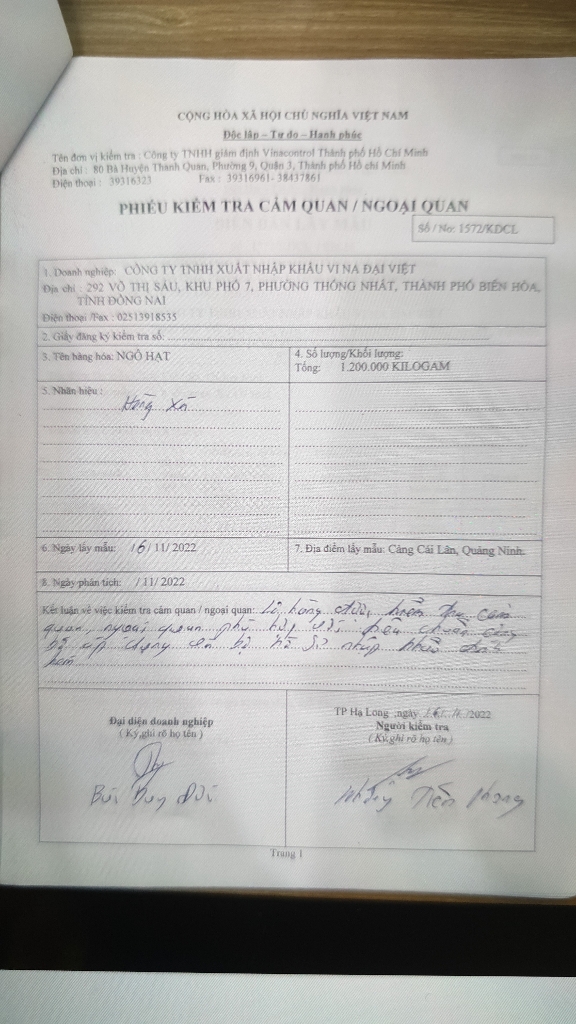 CỘNG HÒA XÃ HỘI CHỦ NGHĨA VIỆT NAM
Độc lập – Tự do – Hanh phúc
Tên đơn vị kiểm tra : Công ty TNHH giám định Vinacontrol Thành phố Hồ Chí Minh
Địa chỉ : 80 Bà Huyện Thanh Quan, Phường 9, Quận 3, Thành phố Hồ chí Minh
Điện thoại : 39316323 Fax : 39316961- 38437861
PHIẾU KIỂM TRA CẢM QUAN / NGOẠI QUAN
Số / No: 1572/KDCL
1. Doanh nghiệp: CÔNG TY TNHH XUẤT NHẬP KHẨU VI NA ĐẠI VIỆT
Địa chỉ : 292 VÕ THỊ SÁU, KHU PHỐ 7, PHƯỜNG THỐNG NHẤT, THÀNH PHỐ BIÊN HÒA,
TỈNH ĐỒNG NAI
Điện thoại /Fax : 02513918535
2. Giấy đăng ký kiểm tra số:
3. Tên hàng hóa: NGÔ HẠT
4. Số lượng/Khối lượng:
Tổng: 1.200.000 KILOGAM
5. Nhãn hiệu :
Hàng Xá
6. Ngày lấy mẫu: 16/ 11/ 2022
7. Địa điểm lấy mẫu: Cảng Cái Lân, Quảng Ninh.
8. Ngày phân tích: / 11/ 2022
Kết luận về việc kiểm tra cảm quan / ngoại quan: Lô hàng được kiểm tra cảm
quan, ngoại quan phù hợp với tiêu chuẩn công
bố áp dụng và bộ hồ sơ nhập khẩu đính
kèm
Đại diện doanh nghiệp
( Ký,ghi rõ họ tên )
Bùi Duy
TP Hạ Long ,ngày 16/ 11/2022
Người kiểm tra
( Ký,ghi rõ họ tên )
Tiến
Trang 1